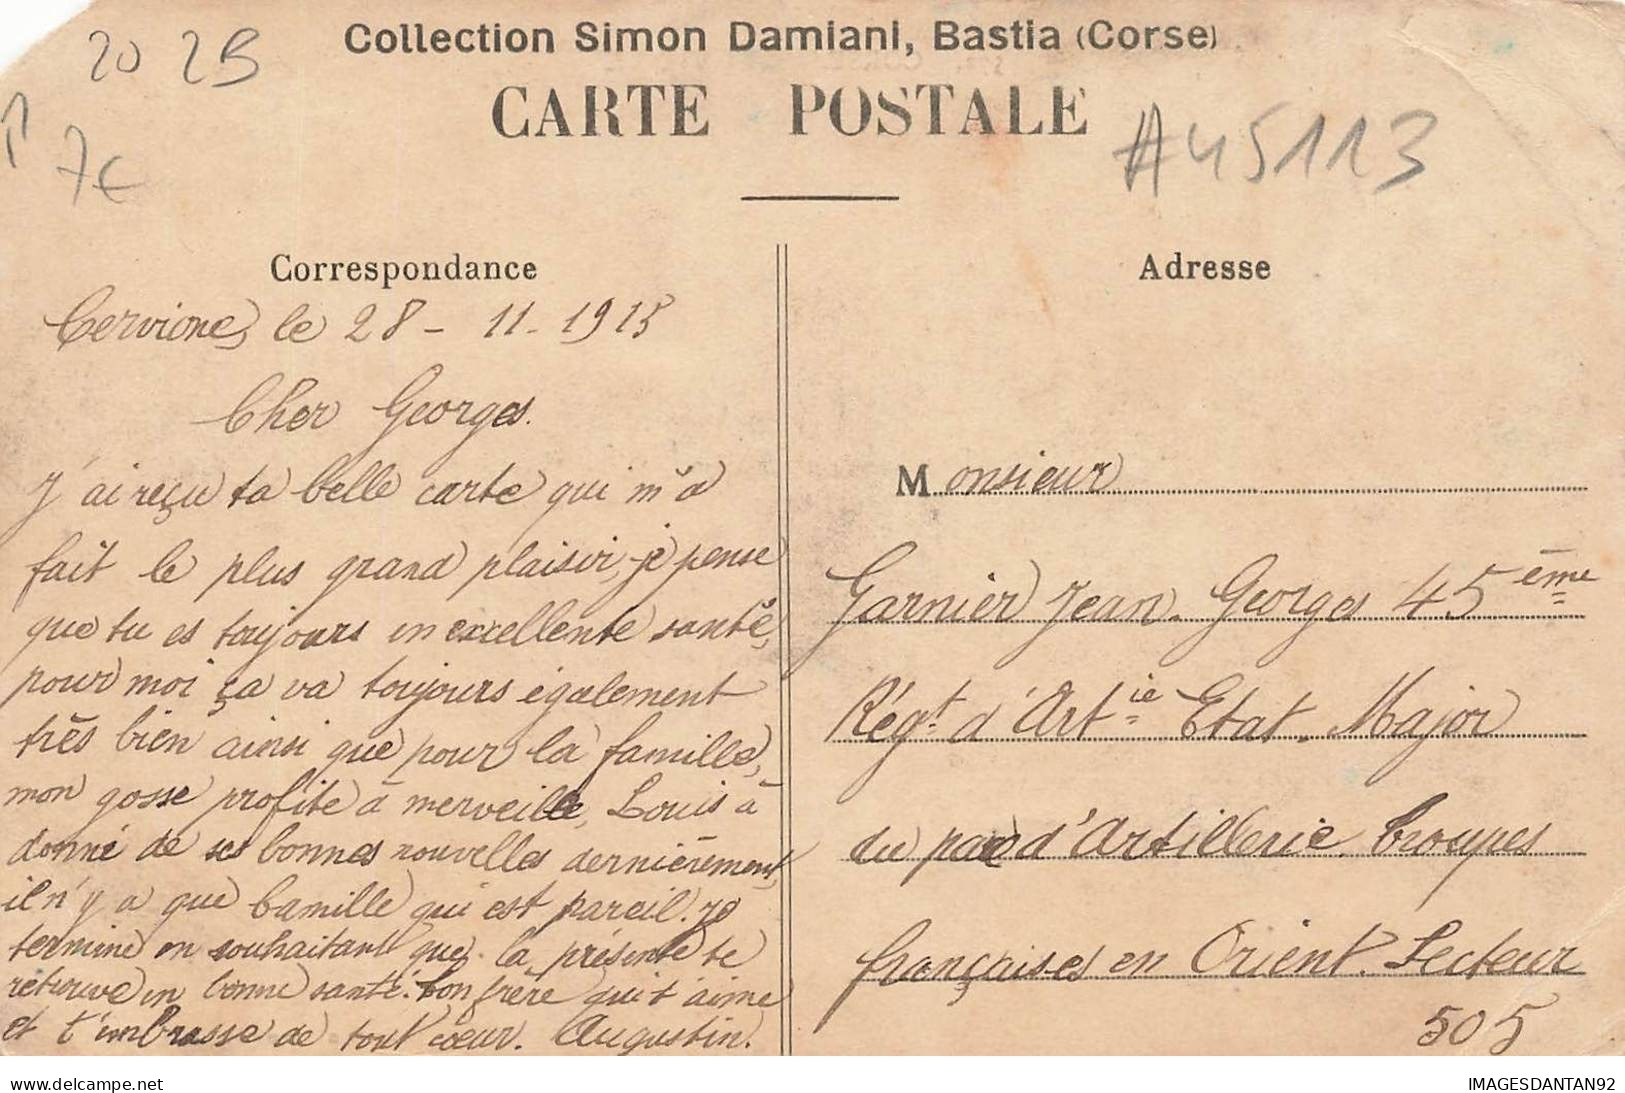 20 2B
7€
Collection Simon Damiani, Bastia (Corse)
CARTE POSTALE
#45113
Correspondance
Cervione, le 28-11-1915
Cher Georges.
J'ai reçu ta belle carte qui m'a
fait le plus grand plaisir, je pense
que tu es toujours en excellente santé,
pour moi ça va toujours également
très bien ainsi que pour la famille,
mon gosse profite à merveille, Louis à
donné de ses bonnes nouvelles dernièrement,
il n'y a que Camille qui est pareil. Je
termine en souhaitant que la présente te
retrouve en bonne santé. Ton frère qui t'aime
et t'embrasse de tout cœur. Augustin.
Adresse
Monsieur
Garnier Jean-Georges 45ème
Régt d'Artie Etat-Major
du parc d'Artillerie. Troupes
françaises en Orient. Secteur
505
delcampe.net
IMAGESDANTAN92